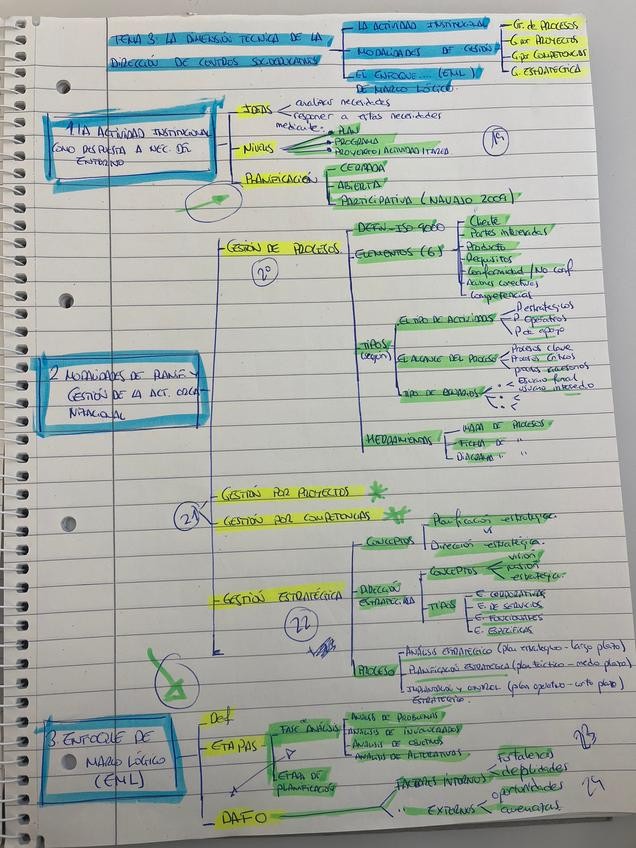 TEMA 3: LA DIMENSIÓN TÉCNICA DE LA
DIRECCIÓN DE CENTROS SOC-EDUCATIVOS
LA ACTIVIDAD INSTITUCIONAL
MODALIDADES DE GESTIÓN
G. de PROCESOS
G. por PROYECTOS
G. por COMPETENCIAS
G. ESTRATÉGICA
EL ENFOQUE.... (EML)
DE MARCO LÓGICO.
1. LA ACTIVIDAD INSTITUCIONAL
COMO RESPUESTA A NEC. DEL
ENTORNO
IDEAS
analizar necesidades
responer a estas necesidades
mediante:
NIVELES
PLAN
PROGRAMA
PROYECTO/ACTIVIDAD/TAREA
19
PLANIFICACIÓN
CERRADA
ABIERTA
PARTICIPATIVA (NAVAJO 2009)
2 MODALIDADES DE PLANIF Y
GESTIÓN DE LA ACT. ORGA
NIZACIONAL
GESTIÓN DE PROCESOS
2º
DEFN-ISO 9000
ELEMENTOS (6)
Cliente
Partes interesadas
Producto
Requisitos
Conformidad/No conf
Acciones correctivas
Competencias
TIPOS
(según)
EL TIPO DE ACTIVIDADES
P estratégicos
P. operativos
P de apoyo
EL ALCANCE DEL PROCESO
Procesos clave
Procesos críticos
procesos necesarios
TIPO DE USUARIOS
usuario final
usuario intermedio
HERRAMIENTAS
MAPA DE PROCESOS
FICHA DE "
DIAGRAMA "
21
GESTIÓN POR PROYECTOS
GESTIÓN POR COMPETENCIAS
GESTIÓN ESTRATÉGICA
22
CONCEPTOS
Planificación estratégica
vs
Dirección estratégica.
DIRECCIÓN
ESTRATÉGICA
CONCEPTOS
visión
misión
estrategia.
TIPOS
E. CORPORATIVAS
E. DE SERVICIOS
E. FUNCIONALES
E. ESPECÍFICAS
PROCESO
ANÁLISIS ESTRATÉGICO (plan estratégico - largo plazo)
PLANIFICACIÓN ESTRATÉGICA (plan táctico - medio plazo)
IMPLANTACIÓN Y CONTROL (plan operativo - corto plazo)
ESTRATÉGICO.
3. ENFOQUE DE
MARCO LÓGICO
(EML)
Def
ETAPAS
FASE ANÁLISIS
ANÁLISIS DE PROBLEMAS
ANÁLISIS DE INVOLUCRADOS
ANÁLISIS DE OBJETIVOS
ANÁLISIS DE ALTERATIVAS
23
ETAPA DE
PLANIFICACIÓN
DAFO
FACTORES INTERNOS
fortalezas
debilidades
EXTERNOS
oportunidades
amenazas
24